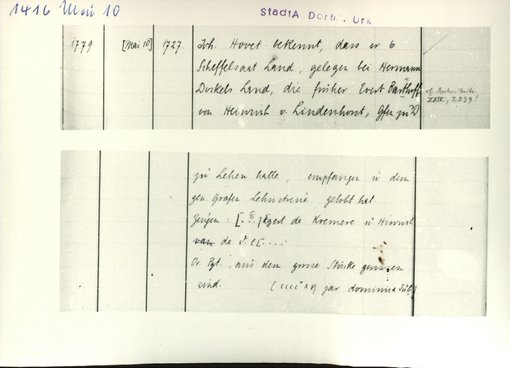 1416 Mai 10
StadtA Dortm. Urk
1779 [Mai 10] 1727 Joh. Hovet bekennt, dass er 6
Scheffelsaat Land, gelegen bei Hermann
Duskels Land, die früher Evert
von Heinrich v. Lindenhorst, Gfen zu D
XXIX, S.239!
zu Lehen hatte, empfangen u dem
gen. Grafen Lehnstreue gelobt hat
Zeugen: [..]egert de Kremere u Heinrich
van de
Or Pgt., aus dem grosse Stücke gerissen
sind. par dominica